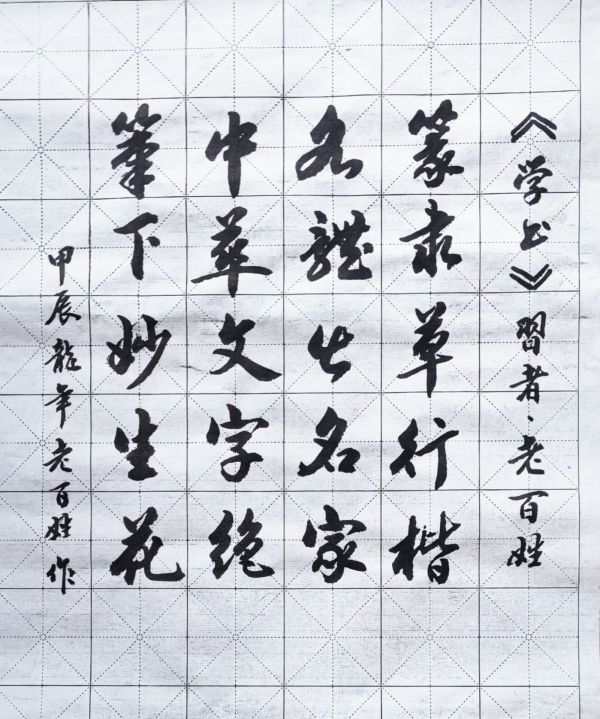 《学书》習者、老百姓
篆隶草行楷
各體出名家
中華文字絶
筆下妙生花
甲辰龍年老百姓作